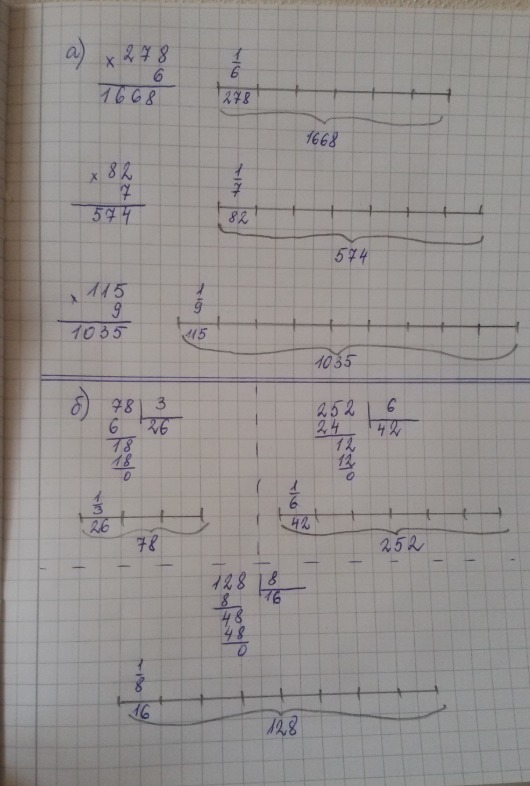 а) × 278
6
1668
1/6
278
1668
× 82
7
574
1/7
82
574
× 115
9
1035
1/9
115
1035
б) 78 | 3
6 26
18
18
0
1/3
26
78
252 | 6
24 42
12
12
0
1/6
42
252
128 | 8
8 16
48
48
0
1/8
16
128